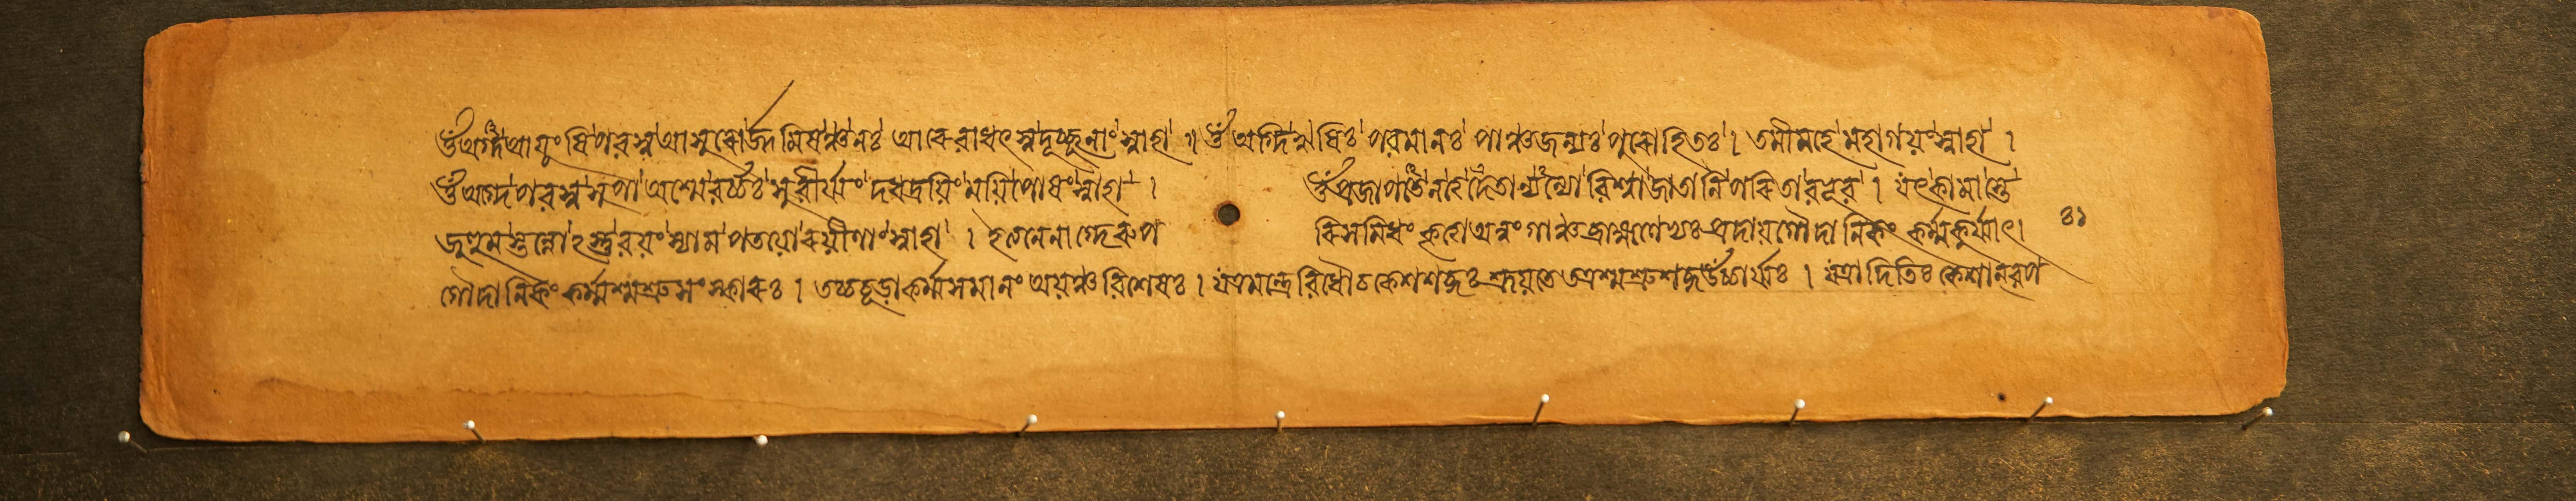 ওঁঅগ্নআয়ুংষিপবস্বআসুবোর্জ্জমিষঞ্চনঃ আরেবাধস্বদুচ্ছুনাংস্বাহা ॥ ওঁ অগ্নিঋষিঃ পবমানঃ পাঞ্চজন্যঃ পুরোহিতঃ । তমীমহে মহাগয়ংস্বাহা ।
ওঁঅগ্নেপবস্বস্বপা অস্মেবর্চ্চঃ সুবীর্য্যং দধদ্রয়িংময়িপোষংস্বাহা । ওঁপ্রজাপতেনত্বদেতান্যন্যোবিশ্বাজাতানিপরিতাবভূব । যৎকামাস্তে
জুহুমস্তন্নোঽস্তুবয়ংস্যামপতয়োরয়ীণাংস্বাহা । ইত্যনেনাগ্নেরুপ রিসমিধং হুত্বাঅন্নংগাঞ্চব্রাহ্মণেভ্যঃপ্রদায়গোদানিকং কর্ম্মকুর্য্যাৎ। ৪১
গোদানিকং কর্ম্মশ্মশ্রুসংস্কারঃ । তচ্চচূড়াকর্ম্মসমানং অয়ঞ্চবিশেষঃ । যত্রমন্ত্রেবিধৌচকেশশব্দঃশ্রূয়তেতত্রশ্মশ্রুশব্দউচ্চার্য্যঃ । যত্রাদিতিঃকেশান্বপ